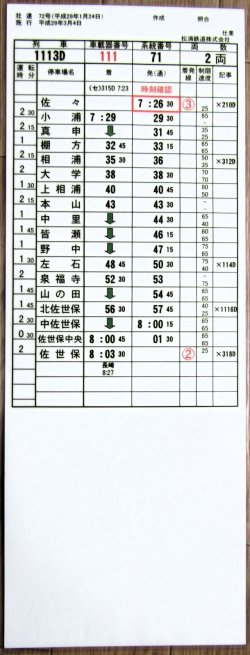 社達 72号(平成29年1月24日) 作成 照合
施行 平成29年3月4日 仕業
松浦鉄道株式会社
列車 車載器番号 系統番号 両数
1113D 111 71 2両
運転時分 停車場名 着 発(通) 着発線 制限速度 記事
(セ)315D 7:23 時刻確認
佐々 7:26 30 ③ 25 ×210D
2 30 小浦 7:29 29 30 65
2 15 真申 ↓ 31 45 65
1 棚方 32 45 33 15
2 15 相浦 35 30 36 ×312D
2 大学 38 38 30
1 30 上相浦 40 40 30
2 本山 43 43 30
1 中里 ↓ 44 30
1 45 皆瀬 ↓ 46 15
1 野中 ↓ 47 15
1 左石 48 45 50 30 ×114D
泉福寺 52 30 53
山の田 ↓ 54 45
北佐世保 56 30 57 45 ×1116D
中佐世保 ↓ 8:00 15
0 30 佐世保中央 8:00 45 01 30
2 佐世保 8:03 30 ② 25 ×318D
長崎
8:27